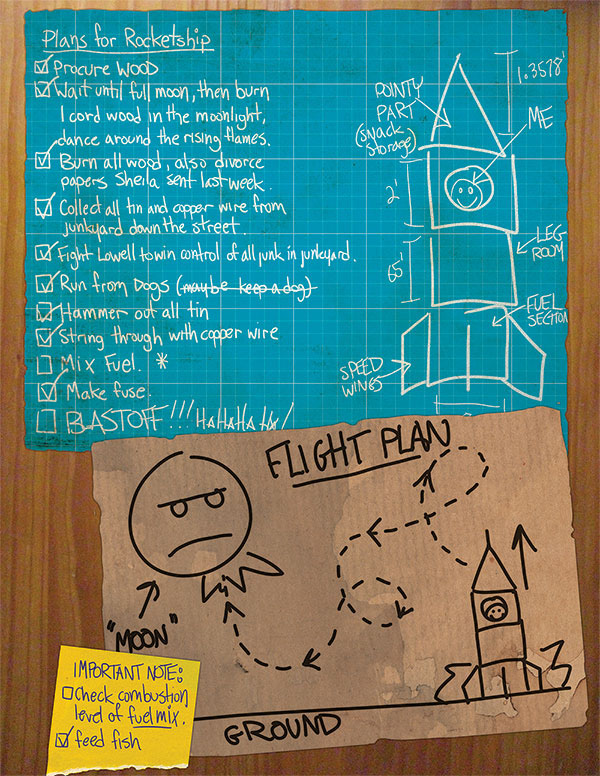 Plans for Rocketship
Procure WOOD
Wait until full moon, then burn
1 cord wood in the moonlight,
dance around the rising flames.
Burn all wood, also divorce
papers Sheila sent last week.
Collect all tin and copper wire from
junkyard down the street.
Fight Lowell to win control of all junk in junkyard.
Run from Dogs (maybe keep a dog)
Hammer out all tin
String through with copper wire
Mix Fuel. *
Make fuse.
BLASTOFF!!! HAHAHA HA!
1.3578'
POINTY
PART
(snack
storage)
ME
2'
65'
LEG
ROOM
FUEL
SECTION
SPEED
WINGS
FLIGHT PLAN
"MOON"
GROUND
IMPORTANT NOTE:
Check combustion
level of fuel mix.
feed fish